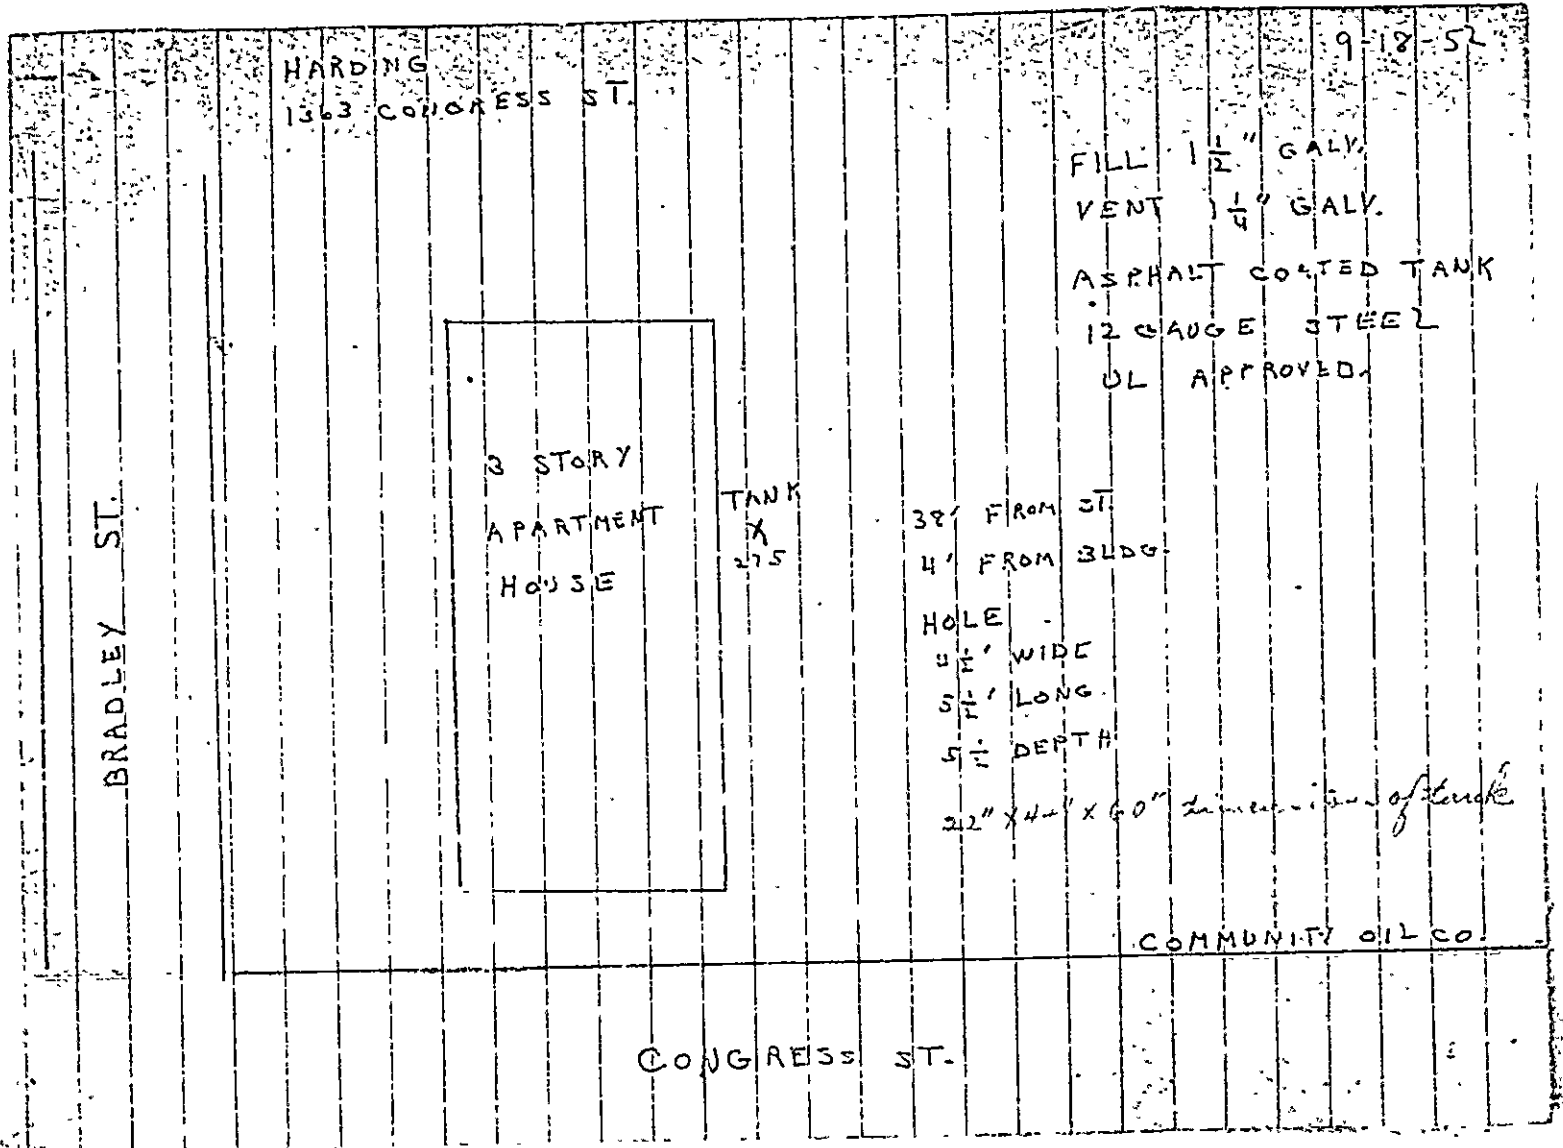 9-18-52
HARDING
1363 CONGRESS ST.
FILL 1 1/2" GALV.
VENT 1 1/4" GALV.
ASPHALT COATED TANK
12 GAUGE STEEL
UL APPROVED.
3 STORY
APARTMENT
HOUSE
TANK
X
275
38' FROM ST.
4' FROM BLDG.
HOLE
4 1/2' WIDE
5 1/2' LONG
5 1/2 DEPTH
22" X 44" X 60" Dimensions of tank
BRADLEY ST.
COMMUNITY OIL CO.
CONGRESS ST.